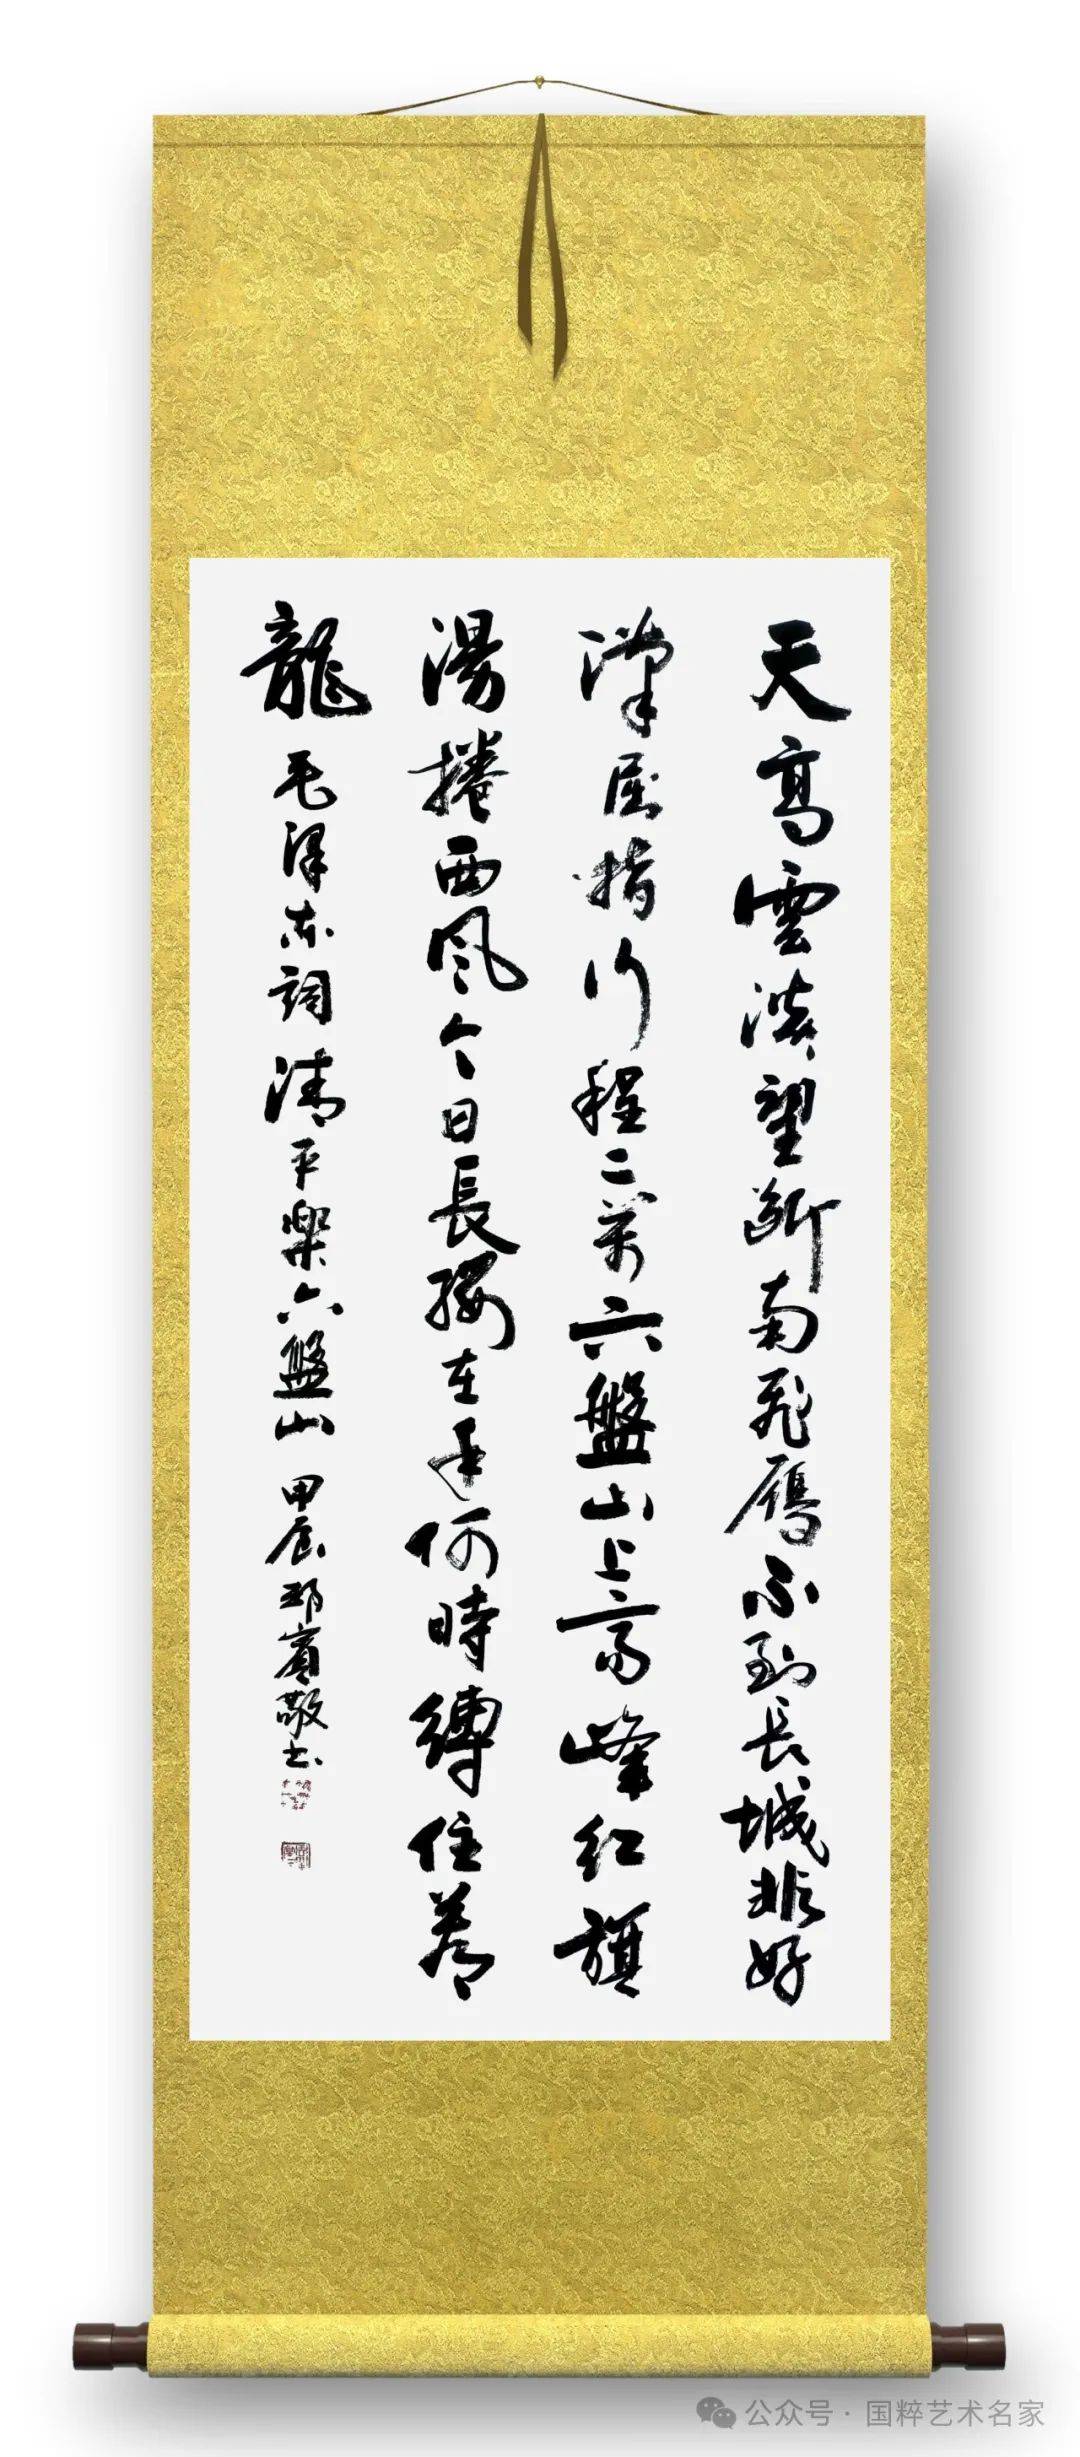 天高雲淡望斷南飛雁不到長城非好
漢屈指行程二萬六盤山上高峰紅旗
漫捲西風今日長纓在手何時縛住蒼
龍 毛澤東詞 清平樂六盤山 甲辰 賓敬书
公众号·国粹艺术名家